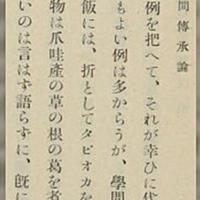 間傳承論
例を把へて、それが幸ひに代
もよい例は多からうが、學問
飯には、折としてタピオカを
物は爪哇產の草の根の葛を煮
いのは言はず語らずに、旣に